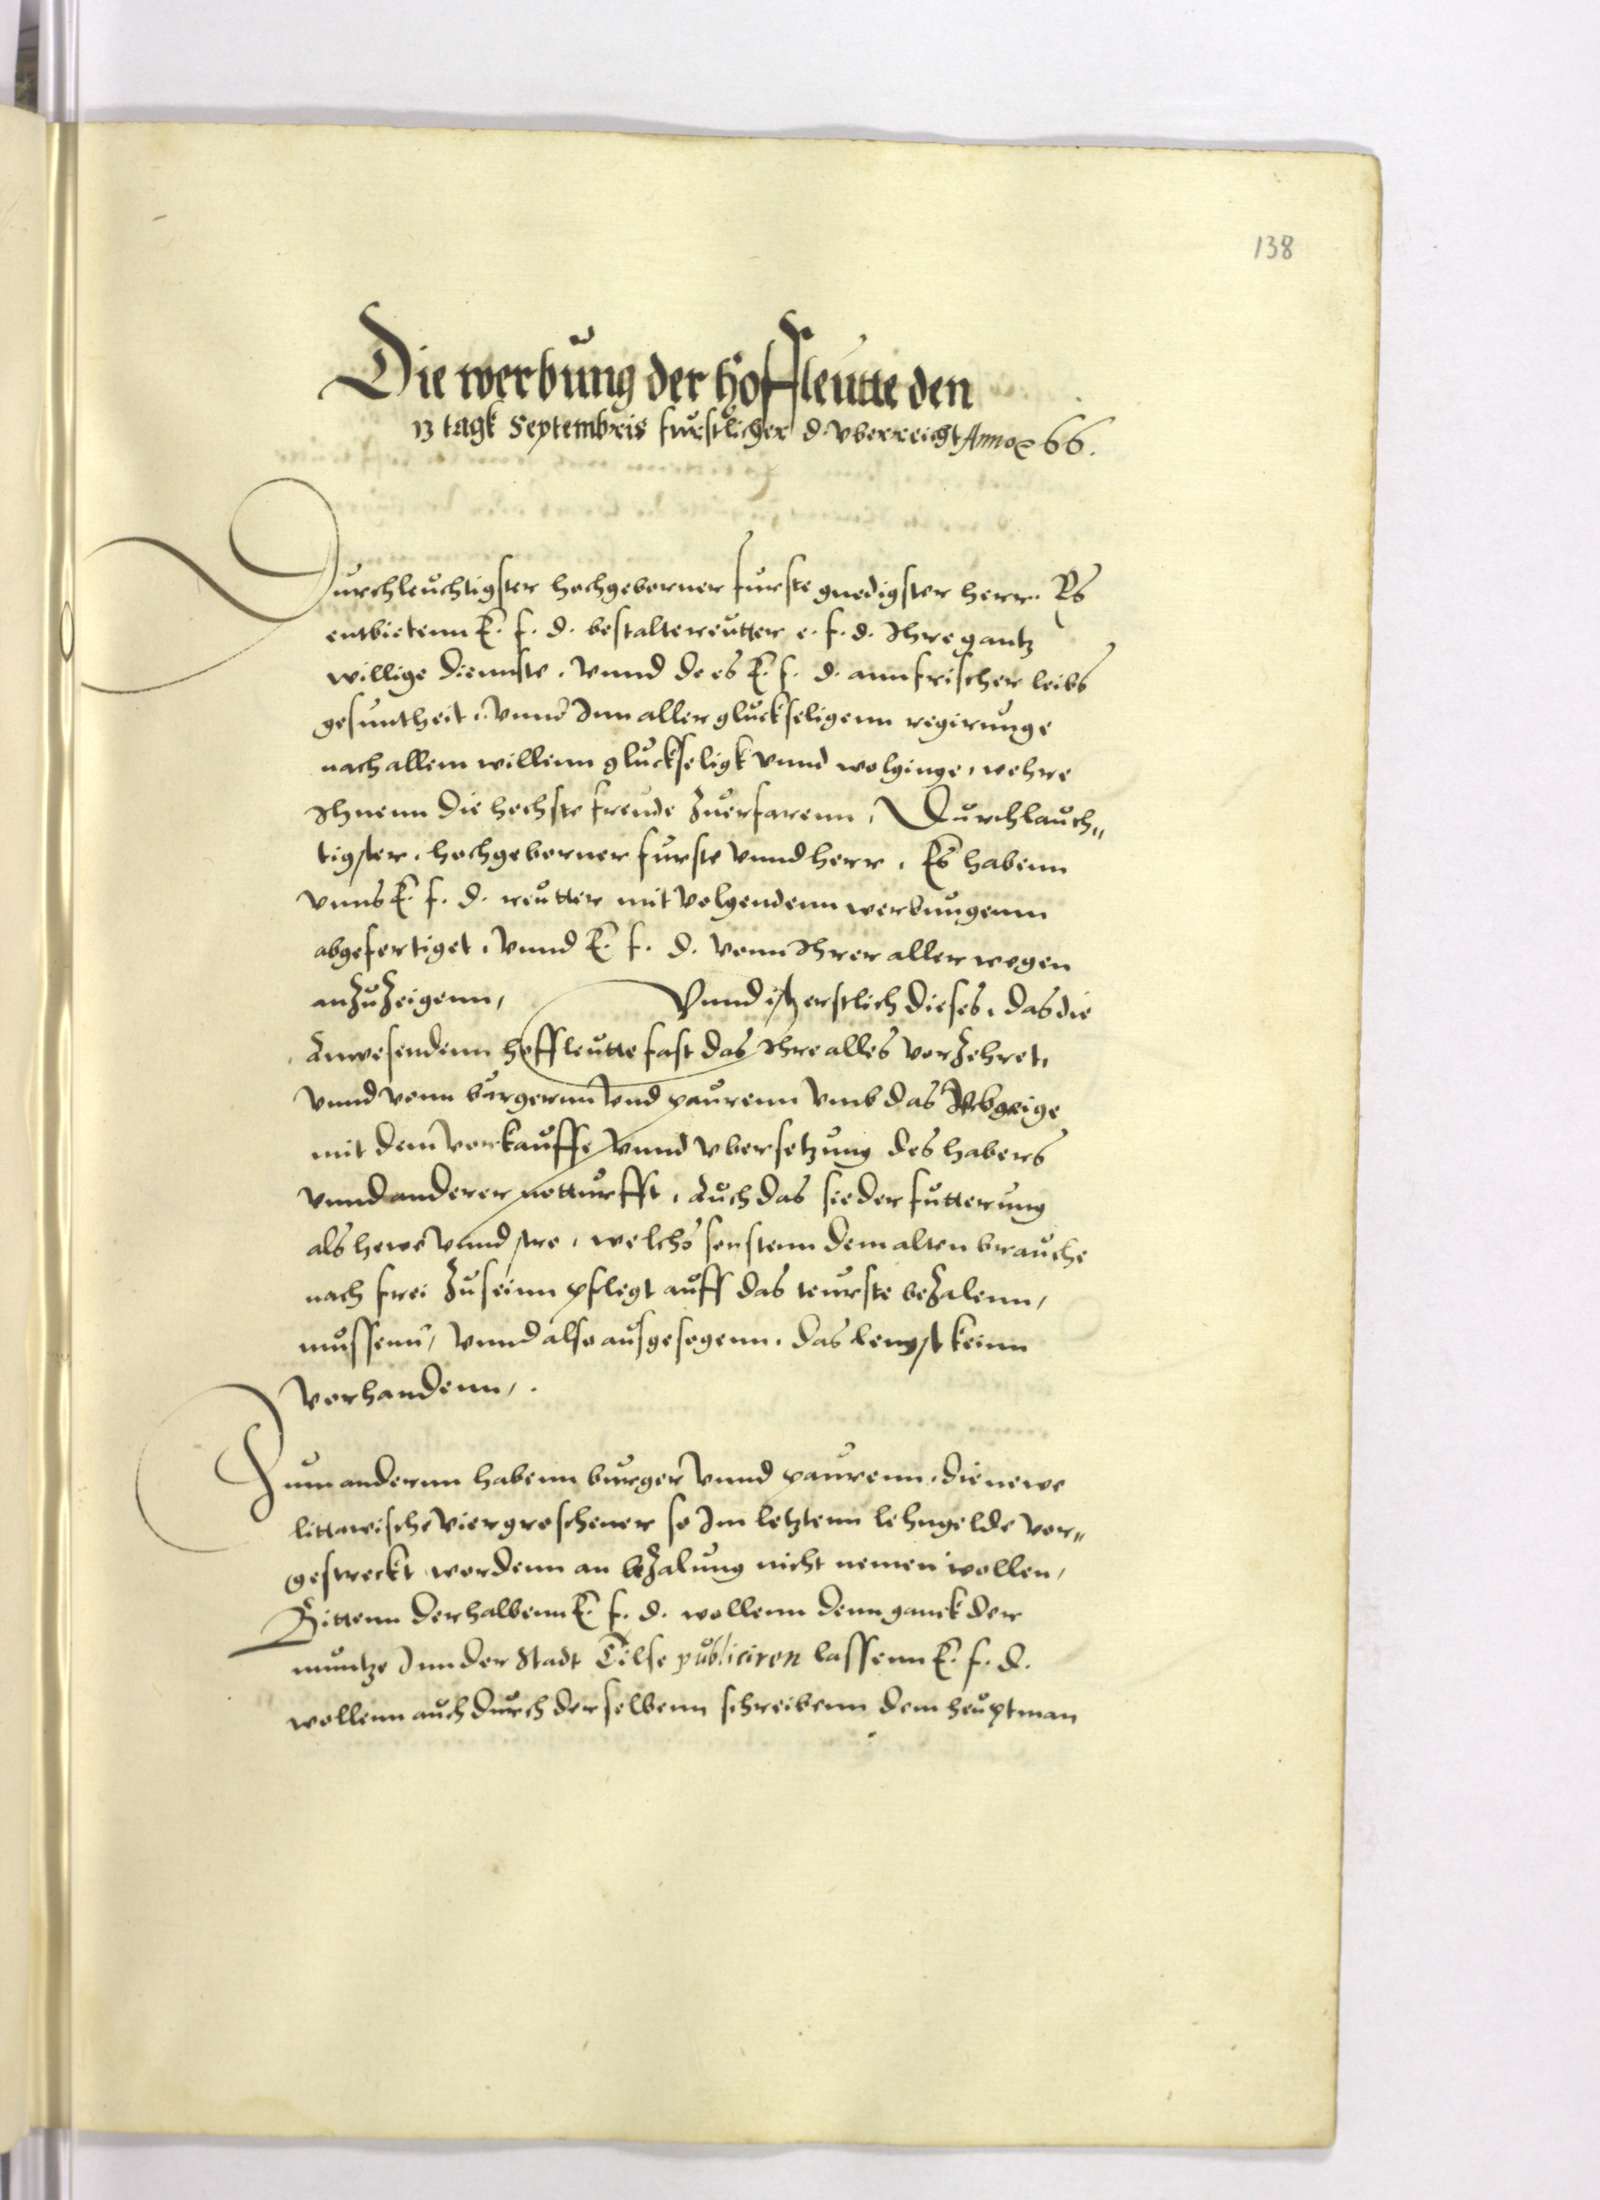 138
Die werbung der Hoffleutte den
13 tagk Septembris furstlicher d. vberreicht Anno 66.
Durchleuchtigster hochgeborner furste gnedigster herr. Es
entbietenn E. f. d. bestalte reutter e. f. d. Ihre gantz
willige dienste, vnnd do es E. f. d. ann frischer leibs
gesuntheit, vnnd Inn aller gluckseligenn regirunge
nach allem willenn gluckseligk vnnd wolginge, wehre
Ihnenn die hochste freude zuerfarenn, Durchlauch„
tigster, hochgeborner furste vnnd herr, Es habenn
vnns E. f. d. reutter mit volgendenn werbungenn
abgefertiget, vnnd E. f. d. vonn Ihrer aller wegen
anzuzeigenn, Vnnd ist erstlich dieses, das die
Anwesendenn hoffleutte fast das Ihre alles vorzehret,
vnnd vonn burgernn vnd paurenn vmb das
mit dem vorkauffe vnnd vbersetzung des habers
vnnd anderer notturfft, Auch das sie der futterung
als hewe vnnd stro, welchs sonstenn dem alten brauche
nach frei zu seinn pflegt auff das teurste bezalenn,
mussenn, vnnd also ausgesogenn, das lengst keinn
vorhandenn,.
Zum andernn habenn burger vnnd paurenn, die newe
littawische viergroschener so Im letztenn lehngelde vor„
gestreckt wordenn an bezalung nicht nemen wollen,
Bittenn derhalbenn E. f. d. wollenn denn ganck der
muntze Inn der Stadt Tilse publiciren lassenn E. f. d.
wollenn auch durch der selbenn schreibenn dem heuptman